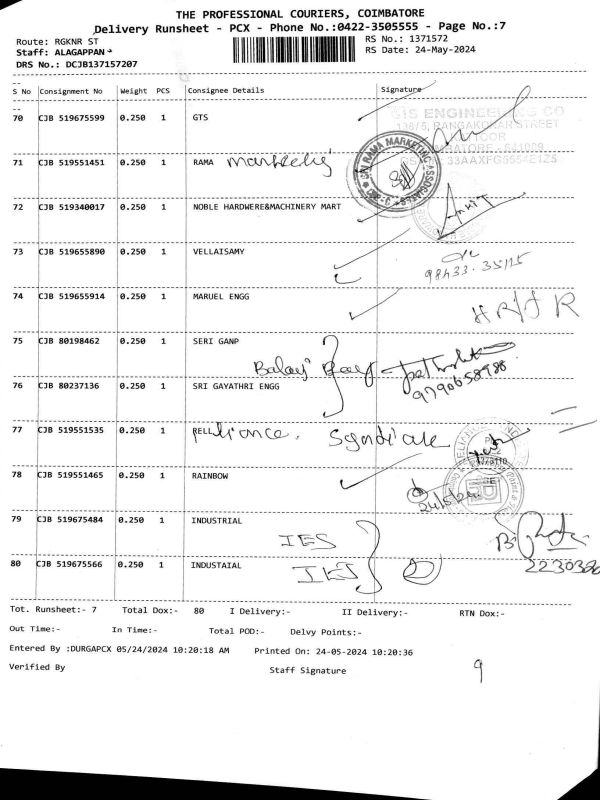 THE PROFESSIONAL COURIERS, COIMBATORE
Delivery Runsheet - PCX - Phone No.:0422-3505555 - Page No.:7
Route: RGKNR ST
RS No.: 1371572
Staff: ALAGAPPAN
RS Date: 24-May-2024
DRS No.: DCJB137157207
S No Consignment No Weight PCS Consignee Details Signature
70 CJB 519675599 0.250 1 GTS
71 CJB 519551451 0.250 1 RAMA Marketing
SRI RAMA MARKETING ASSOCIATES
72 CJB 519340017 0.250 1 NOBLE HARDWERE&MACHINERY MART
73 CJB 519655890 0.250 1 VELLAISAMY
74 CJB 519655914 0.250 1 MARUEL ENGG
75 CJB 80198462 0.250 1 SERI GANP
Balaji
76 CJB 80237136 0.250 1 SRI GAYATHRI ENGG
9790658988
77 CJB 519551535 0.250 1 RELLiance. Syndicate
78 CJB 519551465 0.250 1 RAINBOW
24/5/24
79 CJB 519675484 0.250 1 INDUSTRIAL
IES
80 CJB 519675566 0.250 1 INDUSTAIAL IES
Tot. Runsheet:- 7 Total Dox:- 80 I Delivery:- II Delivery:- RTN Dox:-
Out Time:- In Time:- Total POD:- Delvy Points:-
Entered By :DURGAPCX 05/24/2024 10:20:18 AM Printed On: 24-05-2024 10:20:36
Verified By Staff Signature
9